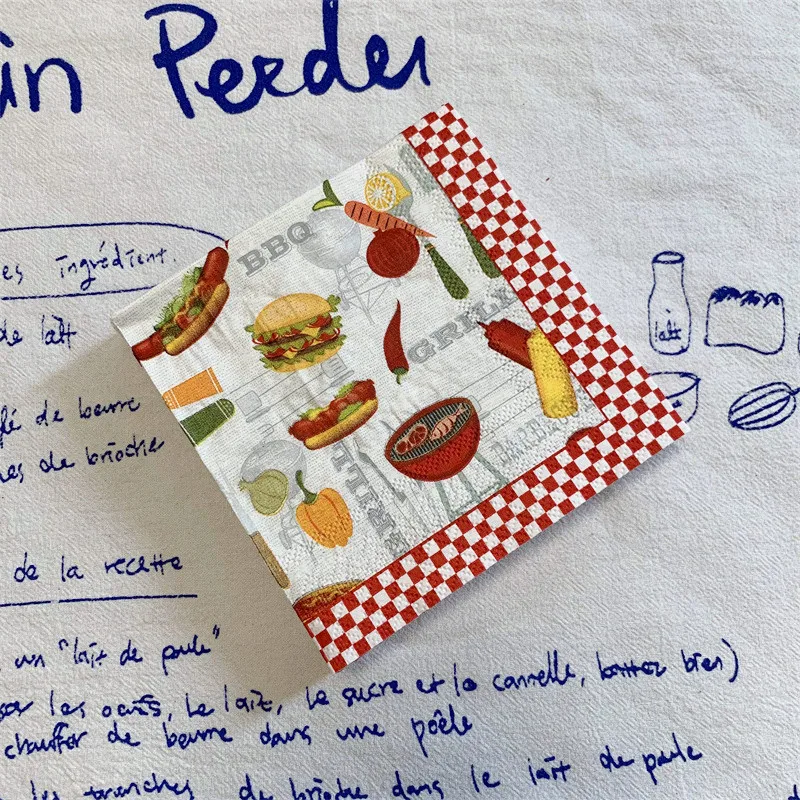 Perdu
es ingrédient.
de lait
BBQ
GRILL
GRILL
lait
de beurre
es de brioche
de la recette
un "lait de poule"
les œufs, le lait, le sucre et la cannelle, battez bien)
chauffer de beurre dans une poêle
les tranches de brioche dans le lait de poule